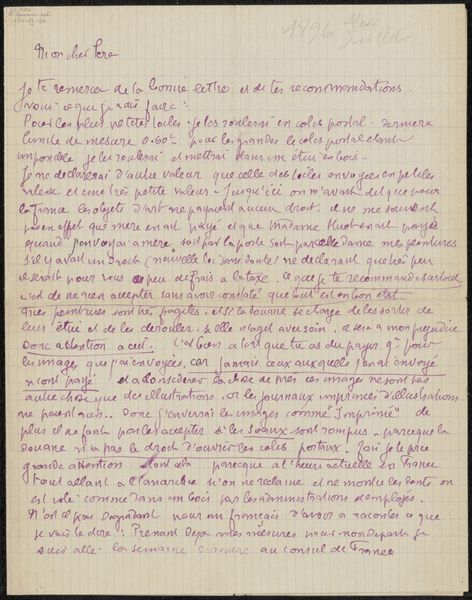 1896
Juillet
Mon cher Père
Je te remercie de la bonne lettre et de tes recommandations.
Voici ce que je vais faire :
Pour les plus petites toiles - je les roulerai en colis postal - dernière
limite de mesure 0.60c - pour les grandes le colis postal étant
impossible je les roulerai et mettrai dans un étui en bois -
Je ne déclarerai d'autre valeur que celle des toiles envoyées en petites
et une très petite valeur - Jusqu'ici on m'avait dit que pour
la France les objets d'art ne payaient aucun droit - je ne me souviens
pas en effet que mère en ait payé et que Madame Huot en ait payé
quand j'envoyai à mère, soit par la poste soit par cette dame mes peintures
s'il y avait un droit (nouvelle loi sans doute) ne déclarant que très peu
ce serait pour vous peu de frais à la taxe. Ce que je te recommande surtout
c'est de ne rien accepter sans avoir constaté que tout est en bon état
mes peintures sont très fragiles - et si la douane se charge de les sortir de
leur étui et de les dérouler - si elle n'agit avec soin, ce sera à mon préjudice
Donc attention à ceci. C'est bien à tort que tu as dû payer pour
les images que j'ai envoyées, car jamais ceux auxquels j'en ai envoyé
n'ont payé et à considérer la chose de près ces images ne sont pas
autre chose que des illustrations. or les journaux imprimés d'illustrations
ne paient pas. Donc j'enverrai les images comme "Imprimés" de
plus il ne faut pas les accepter si les Sceaux sont rompus - parce que la
douane n'a pas le droit d'ouvrir les colis postaux. Fais je te prie
grande attention à tout cela parce qu'à l'heure actuelle la France
tout allant à l'anarchie si on ne réclame et ne montre les dents on
est volé comme dans un bois par les administrations d'employés.
N'est-il pas dégradant pour un français d'avoir à raconter ce que
je vais te dire : Prenant déjà mes mesures pour mon départ je
suis allé la semaine dernière au consul de France